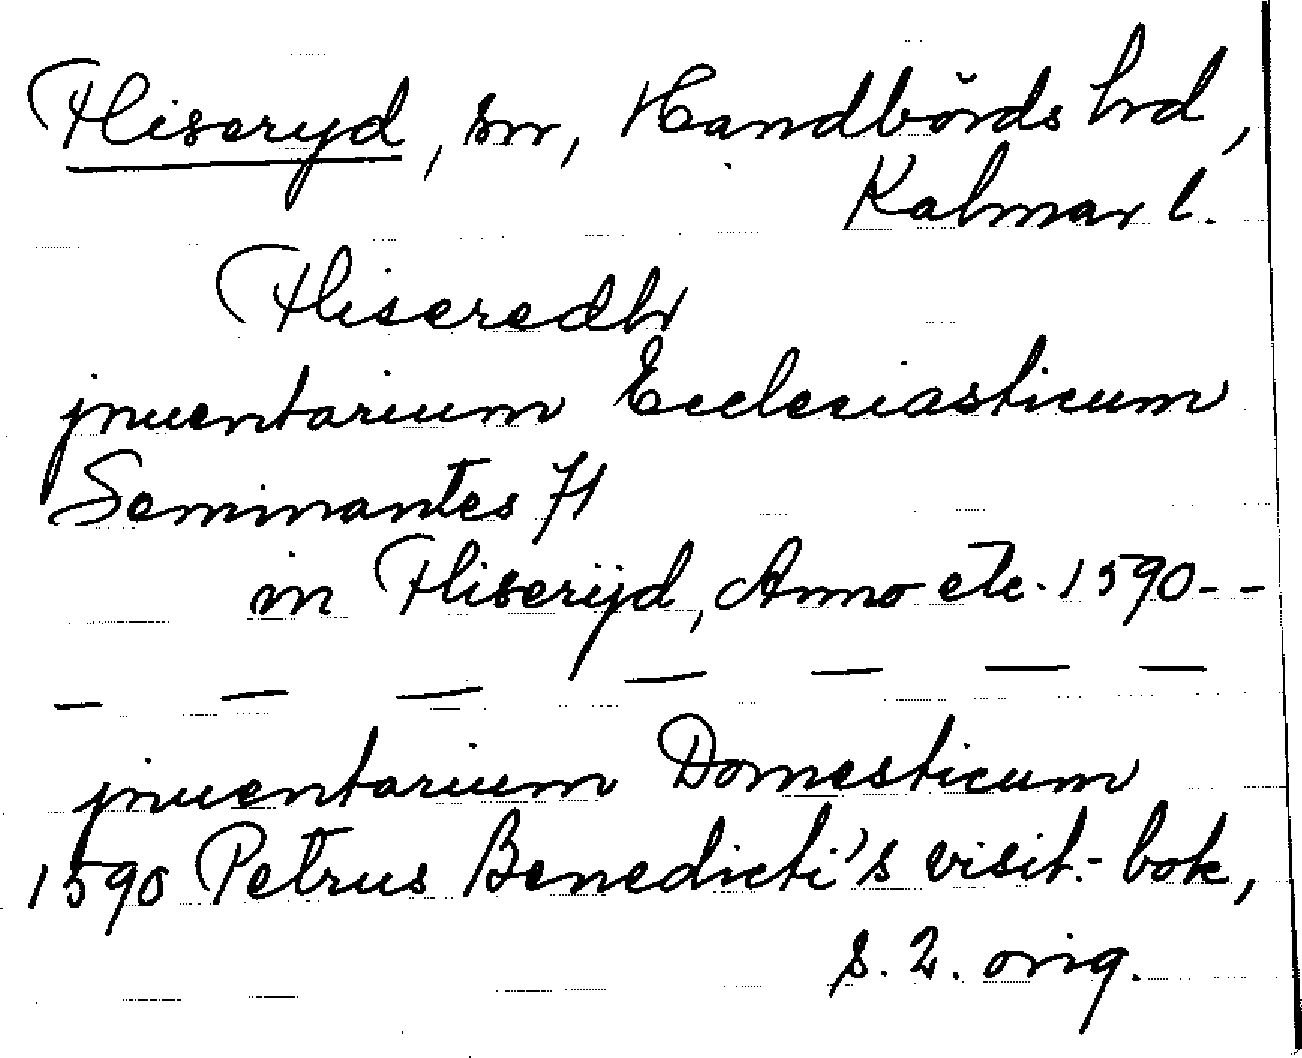 Fliseryd, sn, Handbörds hrd,
Kalmar l.
Fliseredh
jnuentarium Ecclesiasticum
Seminantes 71
in Fliserÿd, Anno etc. 1590--
— — — — — — —
jnuentarium Domesticum
1590 Petrus Benedicti's visit.-bok,
s. 2. orig.